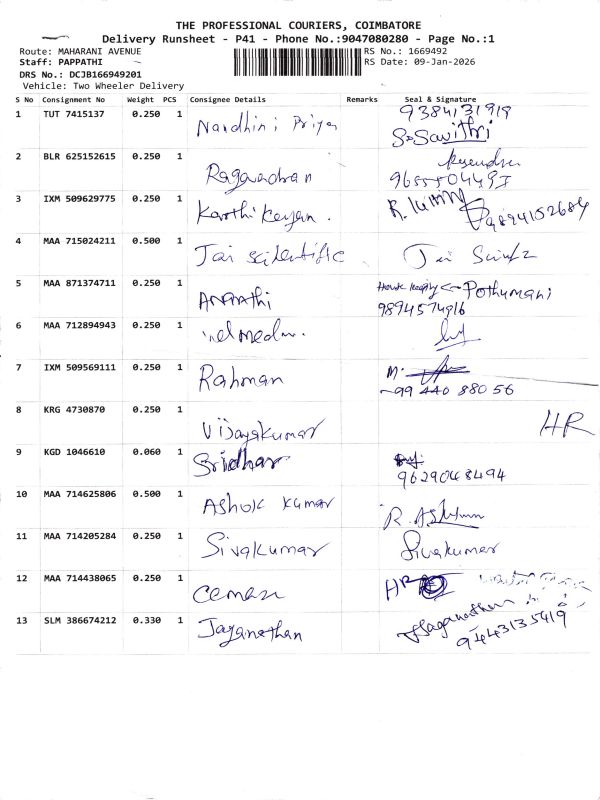 THE PROFESSIONAL COURIERS, COIMBATORE
Delivery Runsheet - P41 - Phone No.:9047080280 - Page No.:1
Route: MAHARANI AVENUE
RS No.: 1669492
Staff: PAPPATHI
RS Date: 09-Jan-2026
DRS No.: DCJB166949201
Vehicle: Two Wheeler Delivery
S No Consignment No Weight PCS Consignee Details Remarks Seal & Signature
1 TUT 7415137 0.250 1 Nandhini Priya 9384131919
S. Savithri
2 BLR 625152615 0.250 1 Ragavendran
3 IXM 509629775 0.250 1 Karthikeyan. 9894152684
4 MAA 715024211 0.500 1 Jai scientific Jai
5 MAA 871374711 0.250 1 Pothumani
9894574916
6 MAA 712894943 0.250 1
7 IXM 509569111 0.250 1 Rahman M.
99 440 880 56
8 KRG 4730870 0.250 1 Vijayakumar HR
9 KGD 1046610 0.060 1 Sridhar
9629048494
10 MAA 714625806 0.500 1 Ashok Kumar
11 MAA 714205284 0.250 1 Sivakumar Sivakumar
12 MAA 714438065 0.250 1 HR
13 SLM 386674212 0.330 1 Jaganathan Jaganathan
9444313 5419